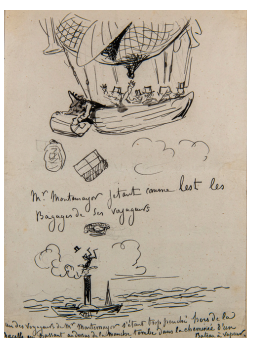 Mr. Montemayor jetant comme lest les
Bagages de ses voyageurs
un des voyageurs de Mr Montemayor s'étant trop penché hors de la
nacelle en passant au dessus de la Manche tombe dans la cheminée d'un
Bateau à vapeur